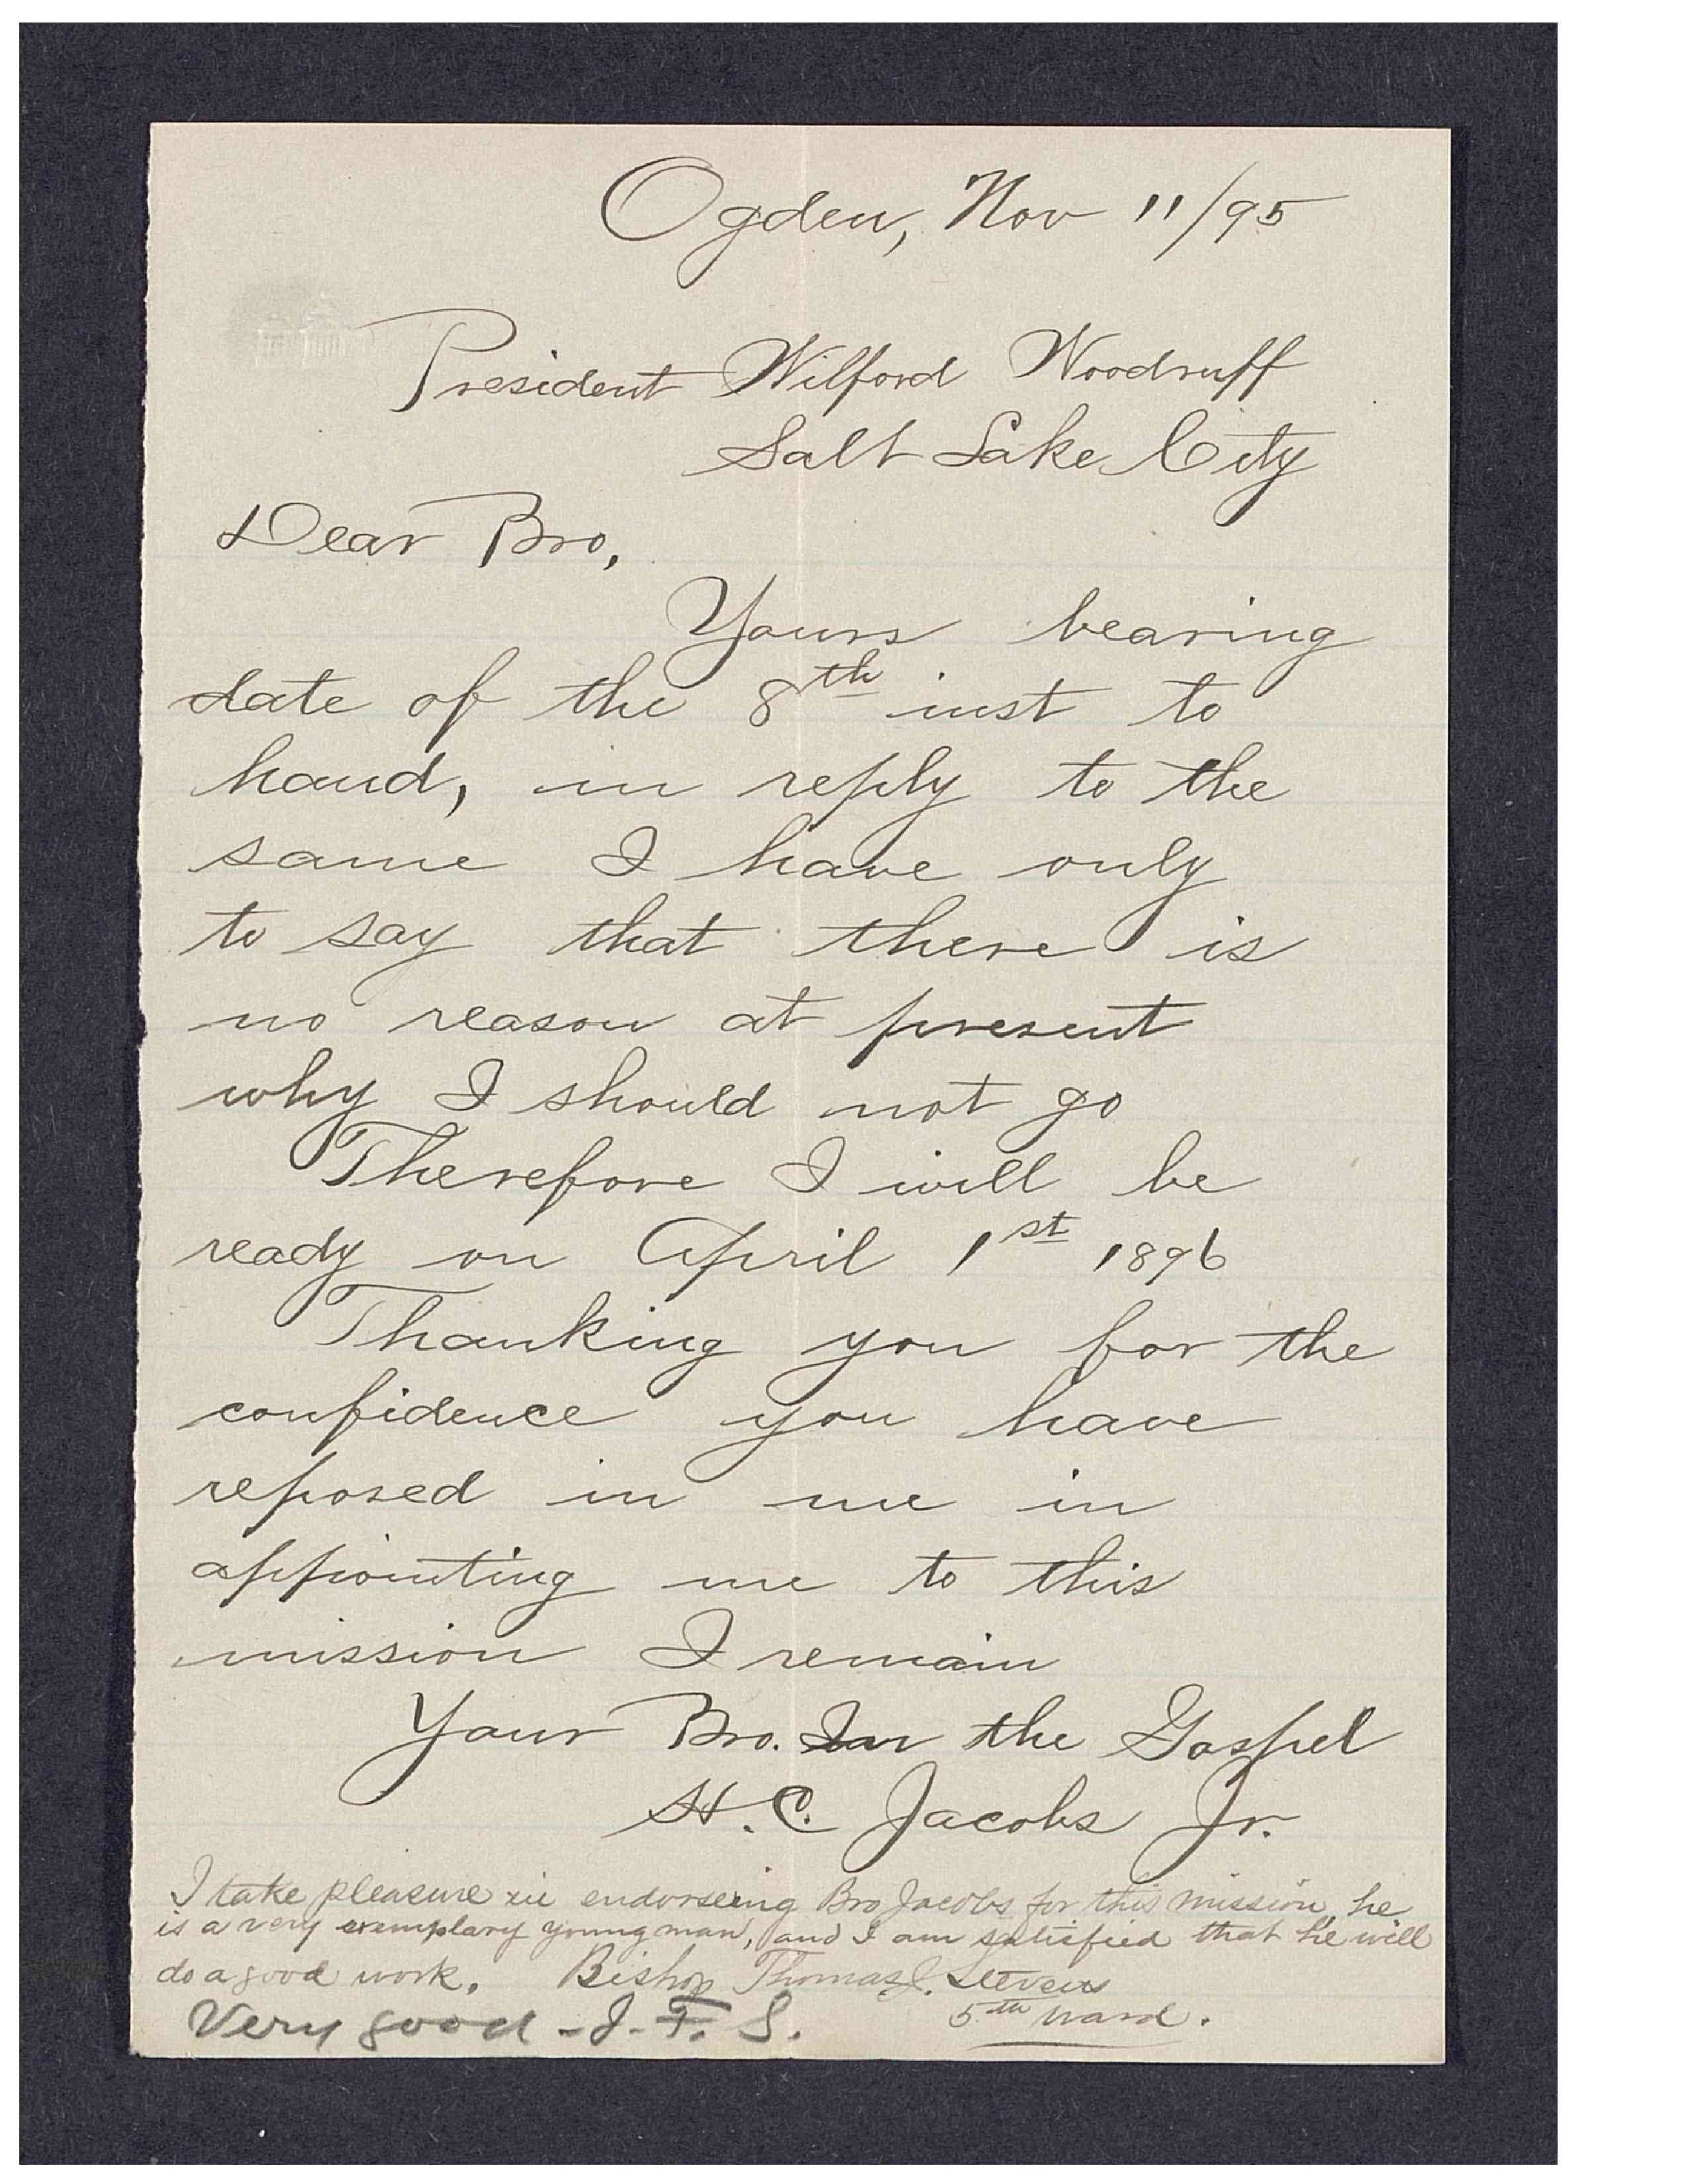 Ogden, Nov 11/95
President Wilford Woodruff
Salt Lake City
Dear Bro,
Yours bearing
date of the 8th inst to
hand, in reply to the
same I have only
to say that there is
no reason at present
why I should not go
Therefore I will be
ready on April 1st 1896
Thanking you for the
confidence you have
reposed in me in
appointing me to this
mission I remain
Your Bro. In the Gospel
H. C. Jacobs Jr.
I take pleasure in endorseing Bro Jacobs for this mission, he
is a very exemplary young man, and I am satisfied that he will
do a good work. Bishop Thomas J. Stevens
5th ward.
Very good - J. F. S.